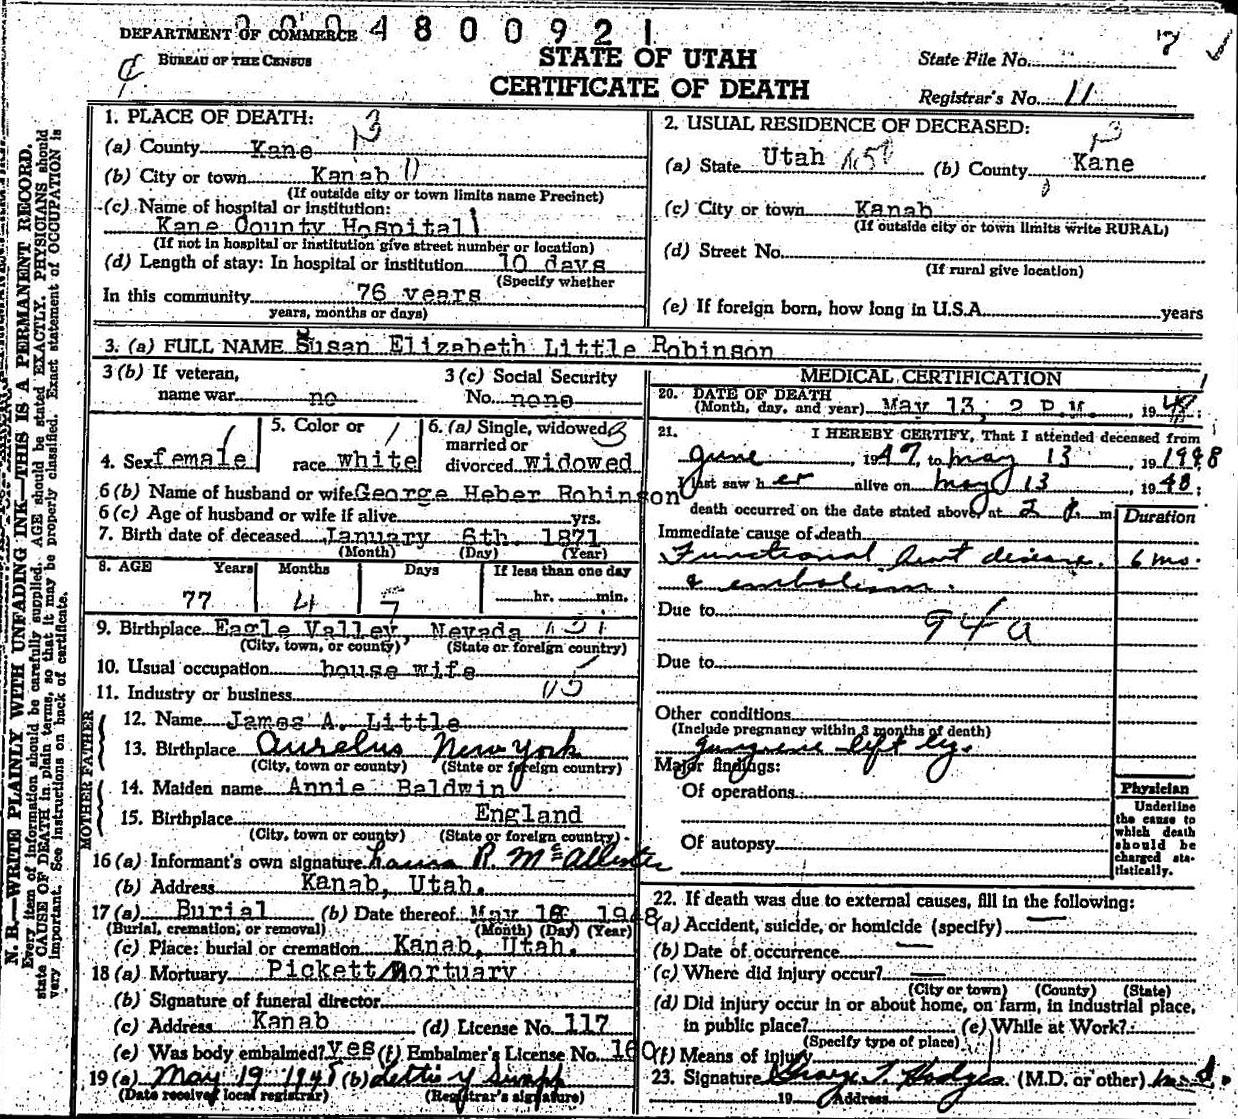 0004800921
DEPARTMENT OF COMMERCE
BUREAU OF THE CENSUS
STATE OF UTAH
CERTIFICATE OF DEATH
State File No. 7
Registrar's No. 11
N. B.—WRITE PLAINLY WITH UNFADING INK—THIS IS A PERMANENT RECORD.
Every item of information should be carefully supplied. AGE should be stated EXACTLY. PHYSICIANS should
state CAUSE OF DEATH in plain terms, so that it may be properly classified. Exact statement of OCCUPATION is
very important. See instructions on back of certificate.
1. PLACE OF DEATH:
(a) County Kane 13
(b) City or town Kanab
(If outside city or town limits name Precinct)
(c) Name of hospital or institution:
Kane County Hospital
(If not in hospital or institution give street number or location)
(d) Length of stay: In hospital or institution 10 days
(Specify whether
In this community 76 years
years, months or days)
2. USUAL RESIDENCE OF DECEASED:
(a) State Utah (b) County Kane 13
(c) City or town Kanab
(If outside city or town limits write RURAL)
(d) Street No.
(If rural give location)
(e) If foreign born, how long in U.S.A. years
3. (a) FULL NAME Susan Elizabeth Little Robinson
3 (b) If veteran,
name war no
3 (c) Social Security
No. none
4. Sex female
5. Color or
race white
6. (a) Single, widowed
married or
divorced widowed
6 (b) Name of husband or wife George Heber Robinson
6 (c) Age of husband or wife if alive yrs.
7. Birth date of deceased January 6th. 1871
(Month) (Day) (Year)
8. AGE Years Months Days If less than one day
77 4 7 hr. min.
9. Birthplace Eagle Valley, Nevada
(City, town, or county) (State or foreign country)
10. Usual occupation house wife
11. Industry or business
FATHER
12. Name James A. Little
13. Birthplace Aurelus New York
(City, town or county) (State or foreign country)
MOTHER
14. Maiden name Annie Baldwin
15. Birthplace England
(City, town or county) (State or foreign country)
16 (a) Informant's own signature R. McAllister
(b) Address Kanab, Utah.
17 (a) Burial (b) Date thereof May 16, 1948
(Burial, cremation, or removal) (Month) (Day) (Year)
(c) Place: burial or cremation Kanab, Utah.
18 (a) Mortuary Pickett Mortuary
(b) Signature of funeral director
(c) Address Kanab (d) License No. 117
(e) Was body embalmed? yes (f) Embalmer's License No. 160
19 (a) May 19 1948 (b)
(Date received local registrar) (Registrar's signature)
MEDICAL CERTIFICATION
20. DATE OF DEATH
(Month, day, and year) May 13, 2 P.M., 1948;
21. I HEREBY CERTIFY, That I attended deceased from
June, 1947, to May 13 19 1948
I last saw her alive on May 13 1948;
death occurred on the date stated above, at 2 P. m
Duration
Immediate cause of death
Functional heart disease. 6 mo.
& embolism.
Due to 94a
Due to
Other conditions
(Include pregnancy within 3 months of death)
gangrene left leg.
Major findings:
Of operations
Of autopsy
Physician
Underline
the cause to
which death
should be
charged sta-
tistically.
22. If death was due to external causes, fill in the following:
(a) Accident, suicide, or homicide (specify) —
(b) Date of occurrence —
(c) Where did injury occur? —
(City or town) (County) (State)
(d) Did injury occur in or about home, on farm, in industrial place,
in public place? (e) While at Work?
(Specify type of place)
(f) Means of injury
23. Signature George T. Hodges (M.D. or other) M.D.
19 Address